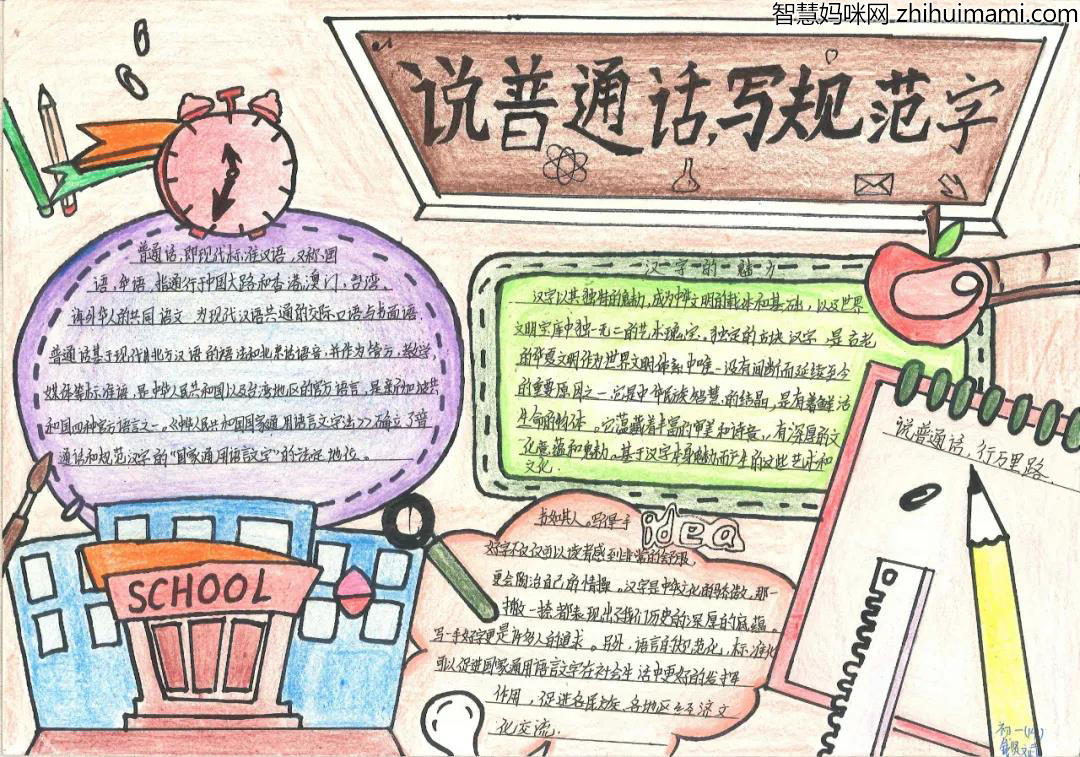 智慧妈咪网 zhihuimami.com
说普通话,写规范字
普通话,即现代标准汉语,又称国
语,华语,指通行于中国大路和香港,澳门,台湾,
海外华人的共同语文 为现代汉语共通的交际口语与书面语
普通话基于现代北方汉语的语法和北京话语音,并作为官方,教学,
媒体等标准语,是中华人民共和国以及台湾地区的官方语言,是新加坡共
和国四种官方语言之一。《中华人民共和国国家通用语言文字法》确立了普
通话和规范汉字的“国家通用语言文字”的法定地位。
汉字的魅力
汉字以其独特的魅力,成为中华文明的载体和基石出,以及世界
文明宝库中独一无二的艺术瑰宝。独定的方块汉字,是古老
的华夏文明作为世界文明体系中唯一没有间断而延续至今
的重要原因之一,它是中华民族智慧的结晶,是有着鲜活
生命的物体。它蕴藏着丰富的审美和诗意,有深厚的文
化意蕴和魅力。基于汉字本身魅力而产生的这些艺术和
文化.
说普通话,行万里路.
idea
书如其人。写得一手
好字不仅仅可以读者感到非常的舒服,
更会陶冶自己的情操。汉字是中华文化的骄傲,那一
撇一捺都表现出了我们历史的深厚的底蕴。
写一手好字更是许多人的追求。另外,语言的规范化,标准化
可以促进国家通用语言文字在社会生活中更好的发挥
作用,促进各民族、各地区经济文
化交流.
SCHOOL
初一(14)